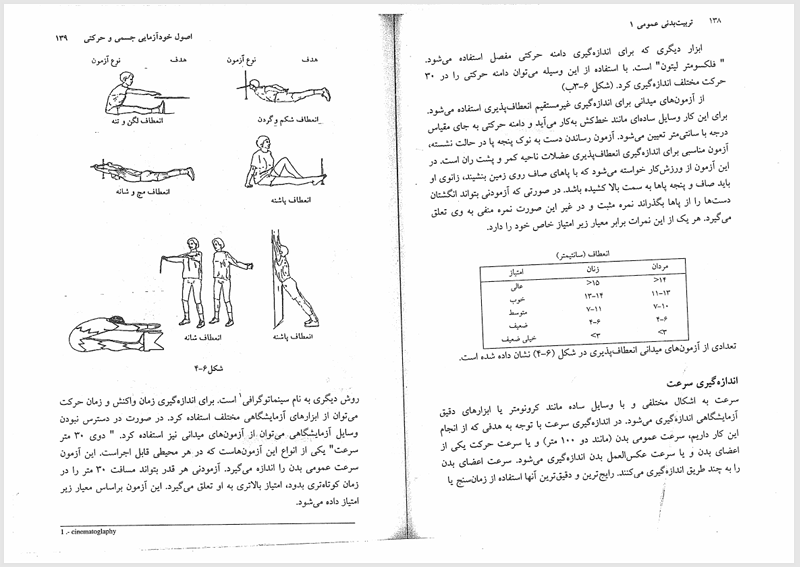 ۱۳۸ تربیت‌بدنی عمومی ۱
ابزار دیگری که برای اندازه‌گیری دامنه حرکتی مفصل استفاده می‌شود.
" فلکسومتر لیتون" است. با استفاده از این وسیله می‌توان دامنه حرکتی را در ۳۰
حرکت مختلف اندازه‌گیری کرد. (شکل ۶-۳ب)
از آزمون‌های میدانی برای اندازه‌گیری غیرمستقیم انعطاف‌پذیری استفاده می‌شود.
برای این کار وسایل ساده‌ای مانند خط‌کش به‌کار می‌آید و دامنه حرکتی به جای مقیاس
درجه با سانتی‌متر تعیین می‌شود. آزمون رساندن دست به نوک پنجه پا در حالت نشسته،
آزمون مناسبی برای اندازه‌گیری انعطاف‌پذیری عضلات ناحیه کمر و پشت ران است. در
این آزمون از ورزش‌کار خواسته می‌شود که با پاهای صاف روی زمین بنشیند، زانوی او
باید صاف و پنجه پاها به سمت بالا کشیده باشد. در صورتی که آزمودنی بتواند انگشتان
دست‌ها را از پاها بگذراند نمره مثبت و در غیر این صورت نمره منفی به وی تعلق
می‌گیرد. هر یک از این نمرات برابر معیار زیر امتیاز خاص خود را دارد.
انعطاف (سانتیمتر)
مردان زنان امتیاز
>۱۴ >۱۵ عالی
۱۱-۱۳ ۱۲-۱۴ خوب
۷-۱۰ ۷-۱۱ متوسط
۴-۶ ۴-۶ ضعیف
<۳ <۳ خیلی ضعیف
تعدادی از آزمون‌های میدانی انعطاف‌پذیری در شکل (۶-۴) نشان داده شده است.
اندازه‌گیری سرعت
سرعت به اشکال مختلفی و با وسایل ساده مانند کرونومتر یا ابزارهای دقیق
آزمایشگاهی اندازه‌گیری می‌شود. در اندازه‌گیری سرعت با توجه به هدفی که از انجام
این کار داریم، سرعت عمومی بدن (مانند دو ۱۰۰ متر) و یا سرعت حرکت یکی از
اعضای بدن و یا سرعت عکس‌العمل بدن اندازه‌گیری می‌شود. سرعت اعضای بدن
را به چند طریق اندازه‌گیری می‌کنند. رایج‌ترین و دقیق‌ترین آنها استفاده از زمان‌سنج یا
اصول خودآزمایی جسمی و حرکتی ۱۳۹
هدف نوع آزمون هدف نوع آزمون
انعطاف شکم و گردن
انعطاف لگن و تنه
انعطاف پاشنه
انعطاف مچ و شانه
انعطاف پاشنه
انعطاف شانه
شکل ۶-۴
روش دیگری به نام سینماتوگرافی۱ است. برای اندازه‌گیری زمان واکنش و زمان حرکت
می‌توان از ابزارهای آزمایشگاهی مختلف استفاده کرد. در صورت در دسترس نبودن
وسایل آزمایشگاهی می‌توان از آزمون‌های میدانی نیز استفاده کرد. " دوی ۳۰ متر
سرعت" یکی از انواع این آزمون‌هاست که در هر محیطی قابل اجراست. این آزمون
سرعت عمومی بدن را اندازه می‌گیرد. آزمودنی هر قدر بتواند مسافت ۳۰ متر را در
زمان کوتاه‌تری بدود، امتیاز بالاتری به او تعلق می‌گیرد. این آزمون براساس معیار زیر
امتیاز داده می‌شود.
1 .- cinematoglaphy